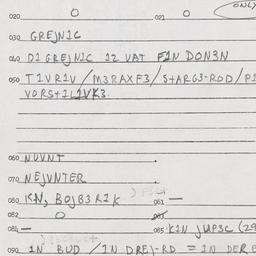 020 O 021 O ONLY
030 GREJN1C
040 D1 GREJN1C 12 VAT F1N DON3N
050 T1VR1V / M3RAXF3 / S+ARG3-ROD / P1
VORS+1L1VK3.
060 NUVNT
070 NEJVNTER
080 K1N, BOJB3R1K 061 —
082 O 083
084 — 085 K1N JUP3C (29
090 1N BUD / 1N DREJ-RD = 1N DER E